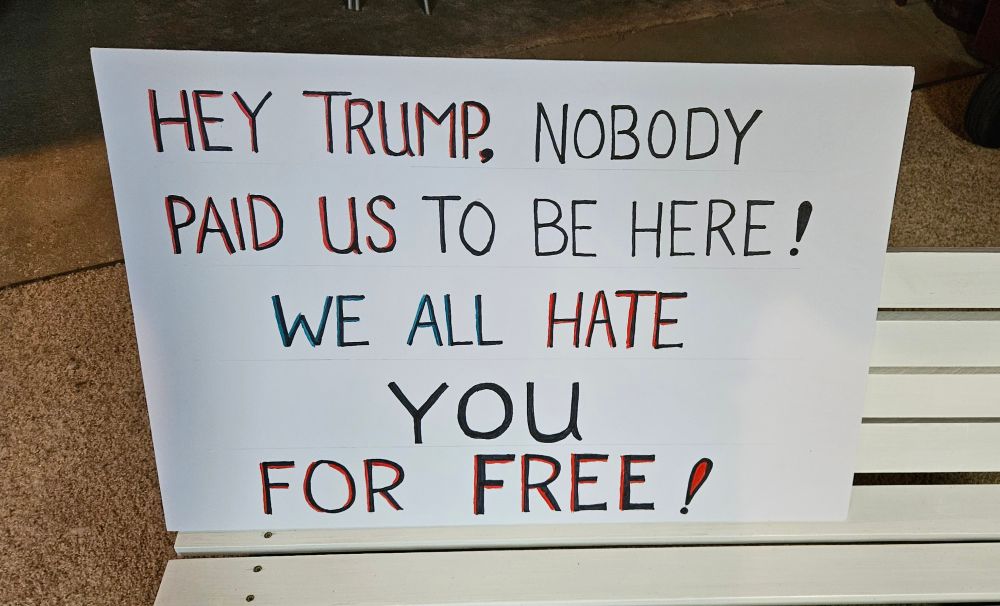 HEY TRUMP, NOBODY
PAID US TO BE HERE!
WE ALL HATE
YOU
FOR FREE!